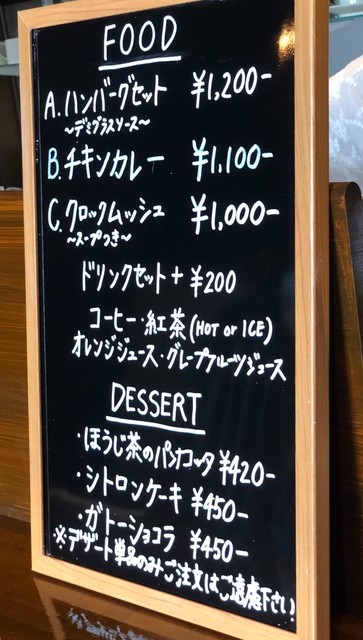 FOOD
A. ハンバーグセット ¥1,200-
～デミグラスソース～
B. チキンカレー ¥1,100-
C. クロックムッシュ ¥1,000-
～スープつき～
ドリンクセット + ¥200
コーヒー・紅茶 (HOT or ICE)
オレンジジュース・グレープフルーツジュース
DESSERT
・ほうじ茶のパンナコッタ ¥420-
・シトロンケーキ ¥450-
・ガトーショコラ ¥450-
※デザート単品のみご注文はご遠慮下さい